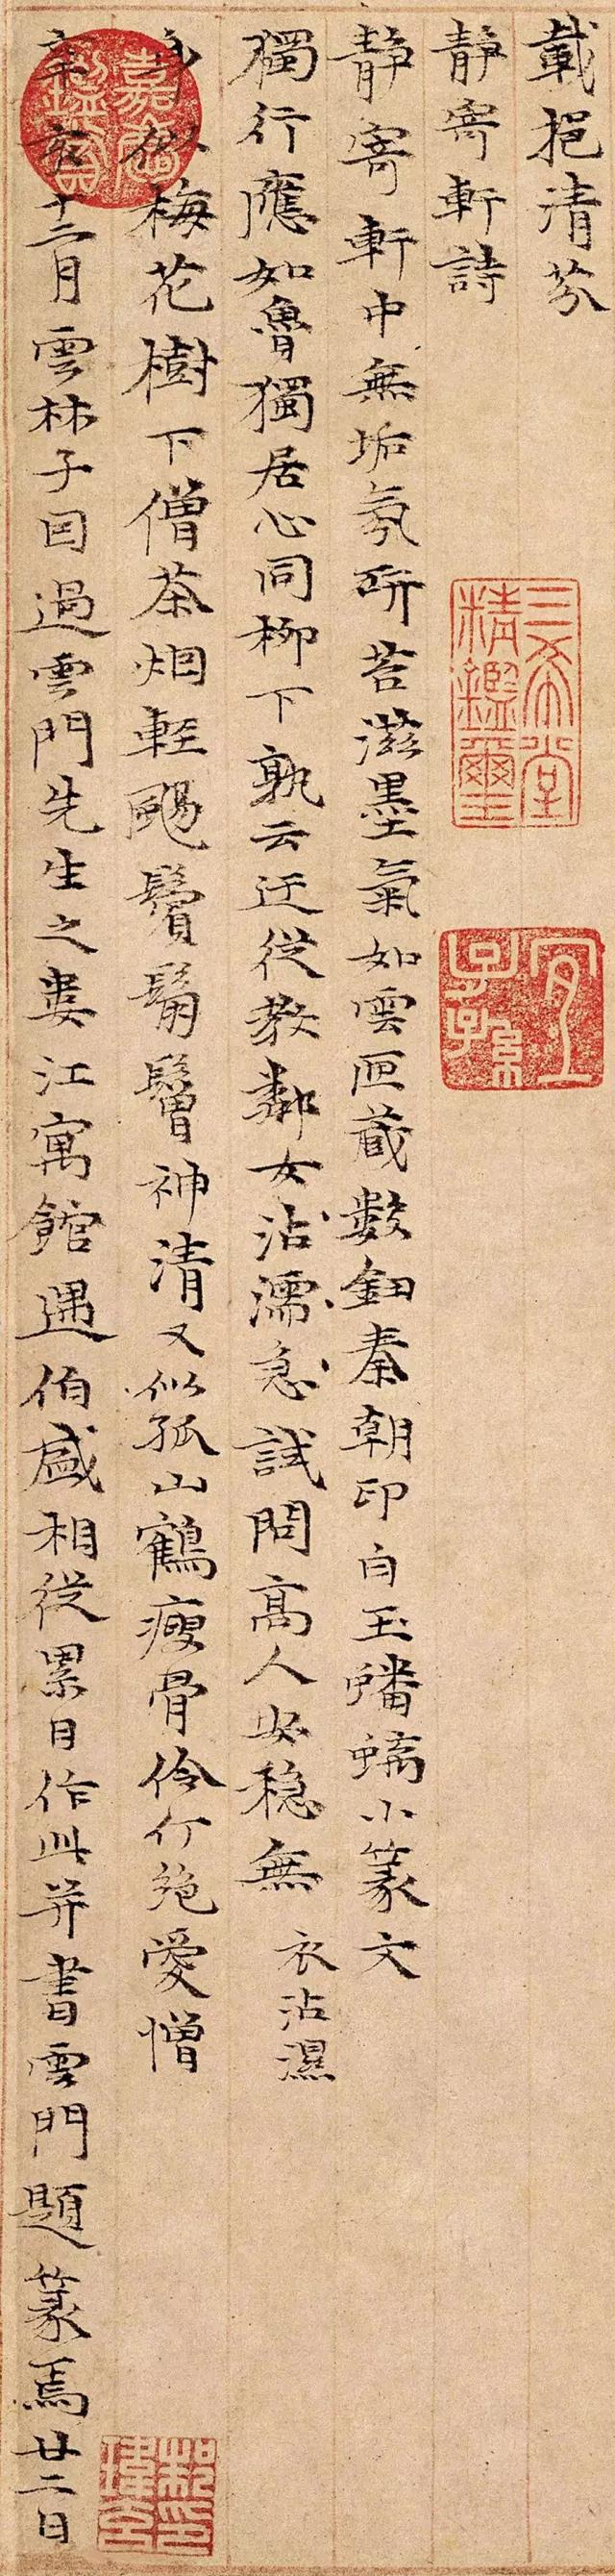 載挹清芬
靜寄軒詩
靜寄軒中無垢氛研苔滋墨氣如雲匣藏數鈕秦朝印白玉蟠螭小篆文
獨行應如魯獨居心同柳下孰云迂從教鄰女沾濡急試問高人安穩無
衣沾濕
身似梅花樹下僧茶烟輕颺鬢鬅鬙神清又似孤山鶴瘦骨伶仃絕愛憎
辛亥十二月雲林子因過雲門先生之婁江寓館遇伯盛相從累日作此并書雲門題篆焉廿二日
三希堂精鑑璽
宜子孫
嘉慶鑑賞